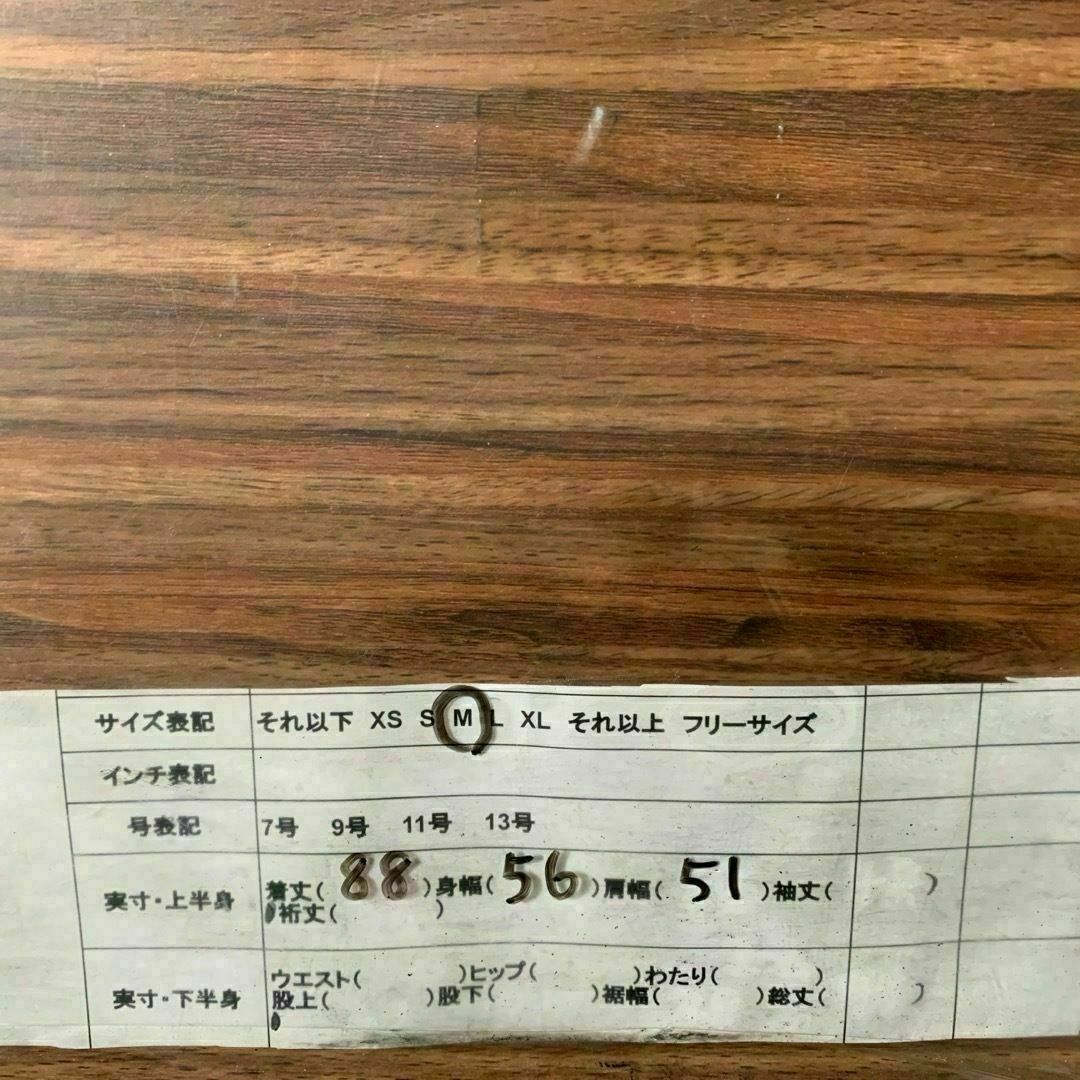 サイズ表記 それ以下 XS S M L XL それ以上 フリーサイズ
インチ表記
号表記 7号 9号 11号 13号
実寸・上半身 着丈( 88 )身幅( 56 )肩幅( 51 )袖丈( )
裄丈( )
実寸・下半身 ウエスト( )ヒップ( )わたり( )
股上( )股下( )裾幅( )総丈( )